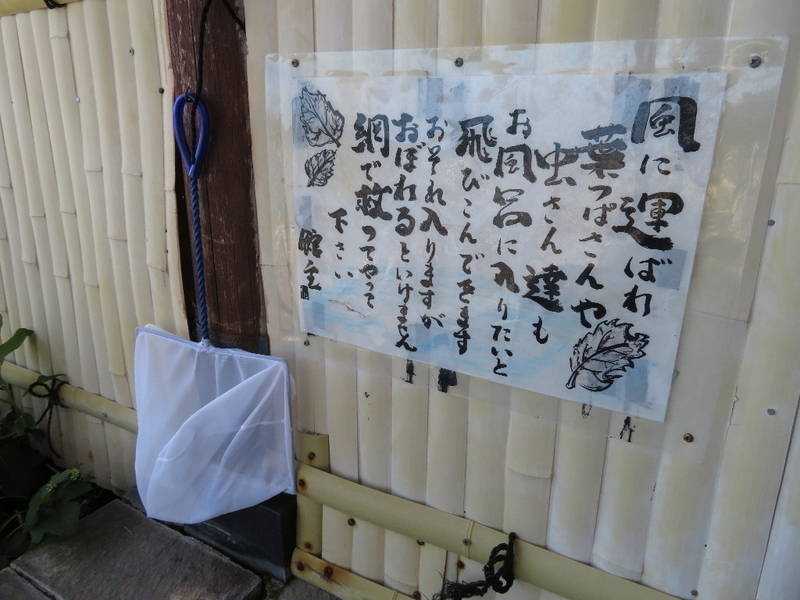 風に運ばれ
葉っぱさんや
虫さん達も
お風呂に入りたいと
飛びこんできます
おそれ入りますが
おぼれるといけません
網で救ってやって
下さい
館主